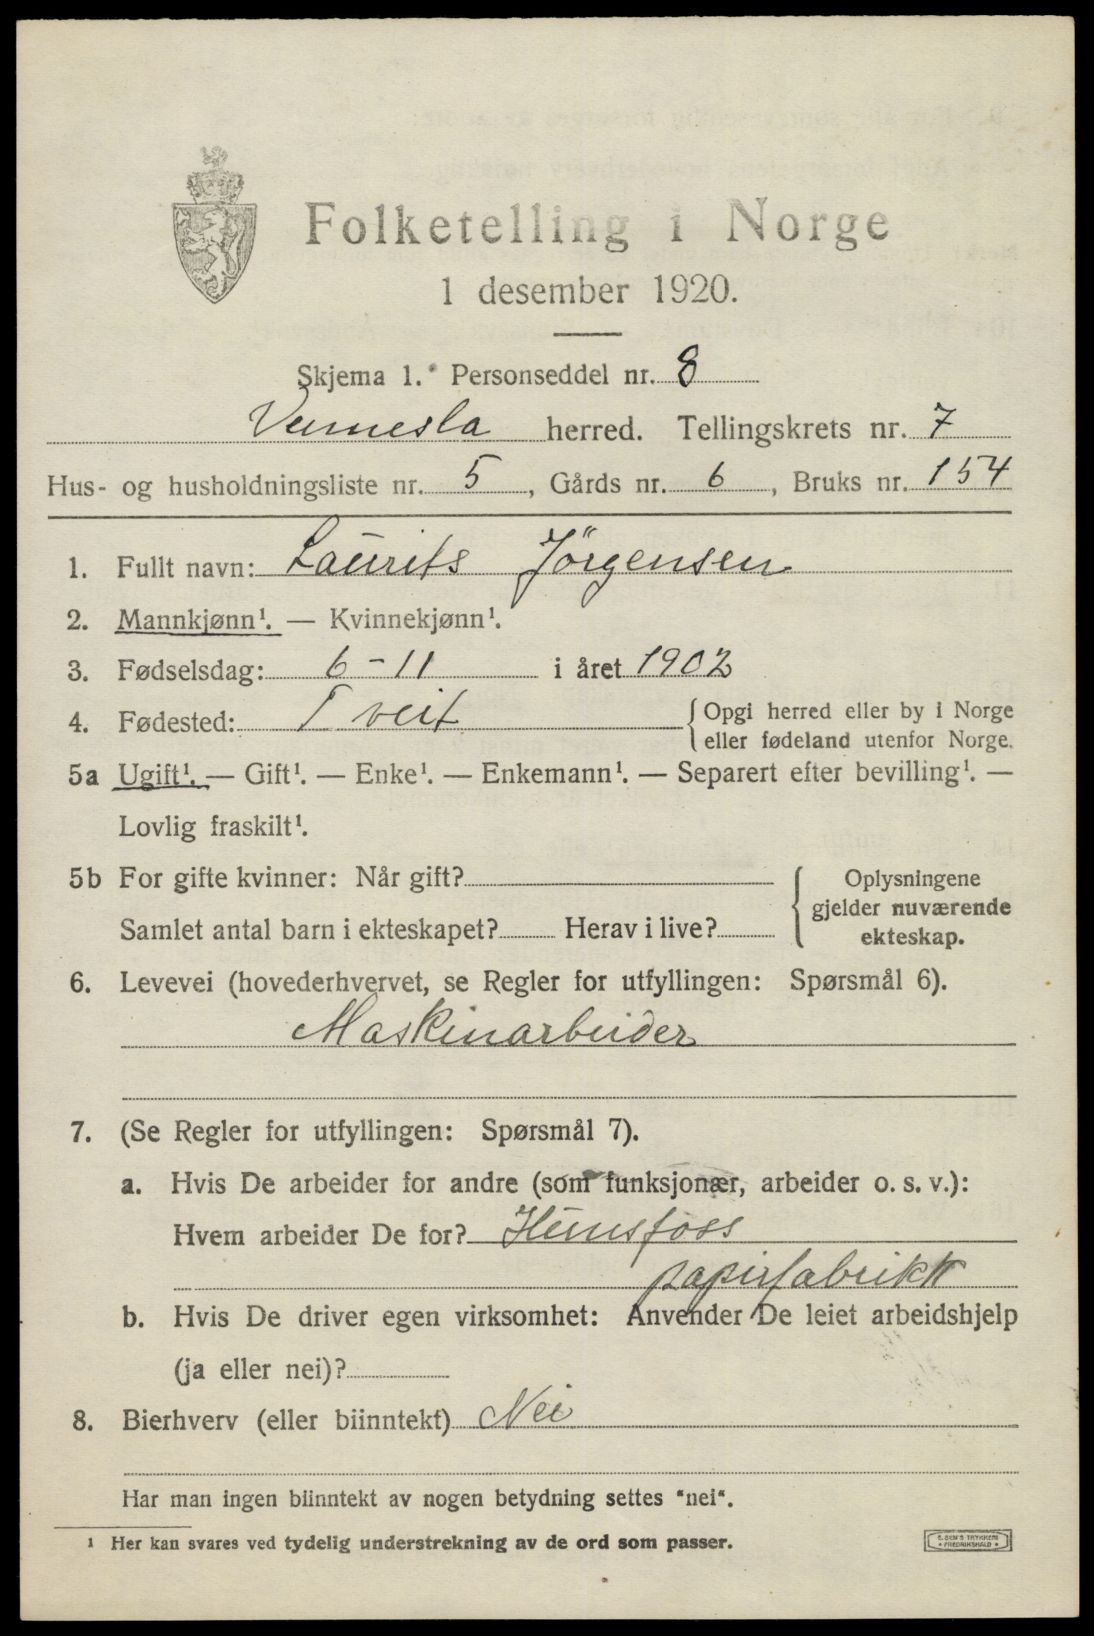 Folketelling i Norge
1 desember 1920.
Skjema 1. Personseddel nr. 8
Vennesla herred. Tellingskrets nr. 7
Hus- og husholdningsliste nr. 5, Gårds nr. 6, Bruks nr. 154
1. Fullt navn: Laurits Jörgensen
2. Mannkjønn¹. — Kvinnekjønn¹.
3. Fødselsdag: 6-11 i året 1902
4. Fødested: Tveit {Opgi herred eller by i Norge
eller fødeland utenfor Norge.
5a Ugift¹. — Gift¹. — Enke¹. — Enkemann¹. — Separert efter bevilling¹. —
Lovlig fraskilt¹.
5b For gifte kvinner: Når gift?
Samlet antal barn i ekteskapet? Herav i live?
{Oplysningene
gjelder nuværende
ekteskap.
6. Levevei (hovederhvervet, se Regler for utfyllingen: Spørsmål 6).
Maskinarbeider
7. (Se Regler for utfyllingen: Spørsmål 7).
a. Hvis De arbeider for andre (som funksjonær, arbeider o. s. v.):
Hvem arbeider De for? Hunsfoss
papirfabrikk
b. Hvis De driver egen virksomhet: Anvender De leiet arbeidshjelp
(ja eller nei)?
8. Bierhverv (eller biinntekt) Nei
Har man ingen biinntekt av nogen betydning settes "nei".
¹ Her kan svares ved tydelig understrekning av de ord som passer.
E. SEM'S TRYKKERI
• FREDRIKSHALD •